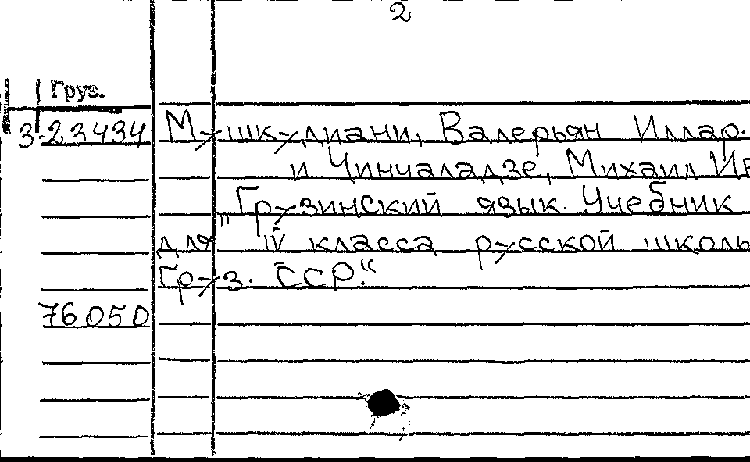 2
Груз.
3-23434 Мушкудиани, Валерьян Иллар.
и Чинчаладзе, Михаил Ив
„Грузинский язык. Учебник
для IV класса русской школы
Груз. ССР.“
76050